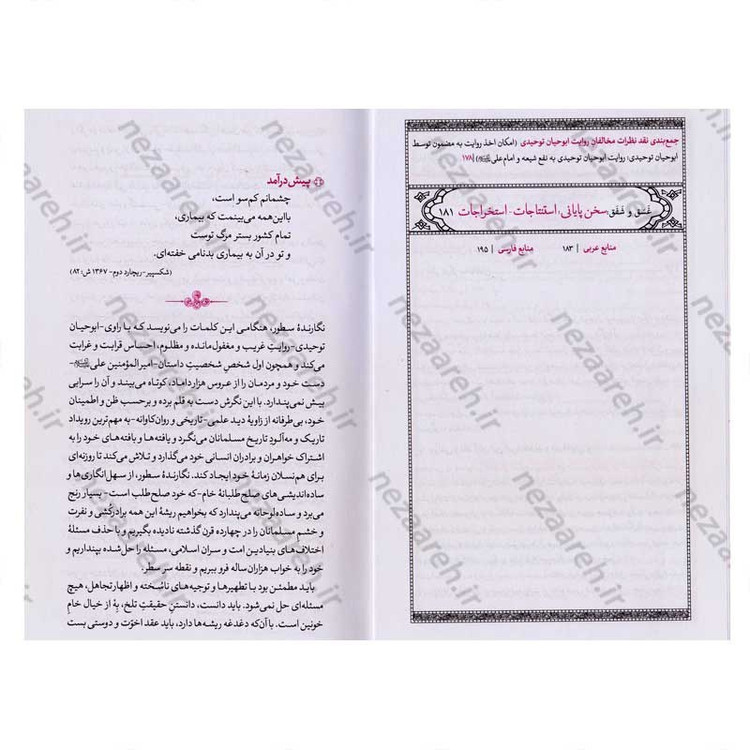 جمع‌بندی نقد نظرات مخالفان روایت ابوحیان توحیدی (امکان اخذ روایت به مضمون توسط
ابوحیان توحیدی؛ روایت ابوحیان توحیدی به نفع شیعه و امام علی) ۱۷۸
سخن پایانی، استنتاجات - استخراجات ۱۸۱
منابع عربی | ۱۸۳ منابع فارسی | ۱۹۵
پیش‌درآمد
چشمانم کم‌سو است،
بااین‌همه می‌بینمت که بیماری،
تمام کشور بستر مرگ توست
و تو در آن به بیماری بدنامی خفته‌ای.
(شکسپیر-ریچارد دوم- ۱۳۶۷ ش: ۸۲)
نگارندهٔ سطور، هنگامی این کلمات را می‌نویسد که با راوی-ابوحیان
توحیدی-روایتِ غریب و مغفول‌مانده و مظلوم، احساس قرابت و غرابت
می‌کند و همچون اول شخصِ شخصیتِ داستان-امیرالمؤمنین علی-
دست خود و مردمان را از عروس هزارداماد، کوتاه می‌بیند و آن را سرابی
بیش نمی‌پندارد. با این نگرش دست به قلم برده و برحسب ظن و اطمینان
خود، بی‌طرفانه از زاویهٔ دید علمی-تاریخی و روان‌کاوانه- به مهم‌ترین رویداد
تاریک و مه‌آلودِ تاریخ مسلمانان می‌نگرد و یافته‌ها و بافته‌های خود را به
اشتراک خواهران و برادران انسانی خود می‌گذارد و تلاش می‌کند تا روزنه‌ای
برای هم‌نسلان زمانهٔ خود ایجاد کند. نگارندهٔ سطور، از سهل‌انگاری‌ها و
ساده‌اندیشی‌های صلح‌طلبانهٔ خام-که خود صلح‌طلب است- بسیار رنج
می‌برد و ساده‌لوحانه می‌داند که بخواهیم ریشهٔ این همه برادرکُشی و نفرت
و خشم مسلمانان را در چهارده قرن گذشته نادیده بگیریم و با حذف مسئلهٔ
اختلاف‌های بنیادیـن امت و سران اسلامی، مسئله را حل شده بپنداریم و
خود را به خواب هزاران ساله فرو ببریم و نقطه سرِ سطر.
باید مطمئن بود با تطهیرها و توجیه‌های ناشُسته و اظهار تجاهل، هیچ
مسئله‌ای حل نمی‌شود. باید دانست، دانستنِ حقیقتِ تلخ، بِه از خیال خام
خونین است. با آن‌که دغدغه ریشه‌ها دارد، باید عقد اخوّت و دوستی بست
nezaareh.ir
nezaareh.ir
nezaareh.ir
nezaareh.ir
nezaareh.ir
nezaareh.ir
nezaareh.ir
nezaareh.ir
nezaareh.ir